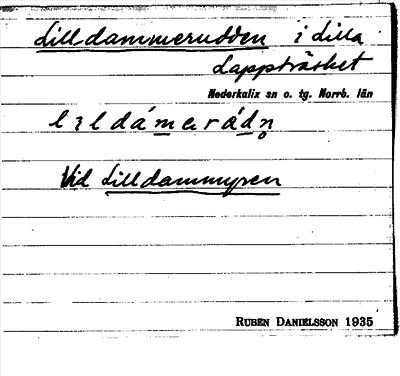 Lilldammerudden i Lilla
Lappträsket
Nederkalix sn o. tg. Norrb. län
lıldámɐrádn̥
Vid Lilldammyren
RUBEN DANIELSSON 1935